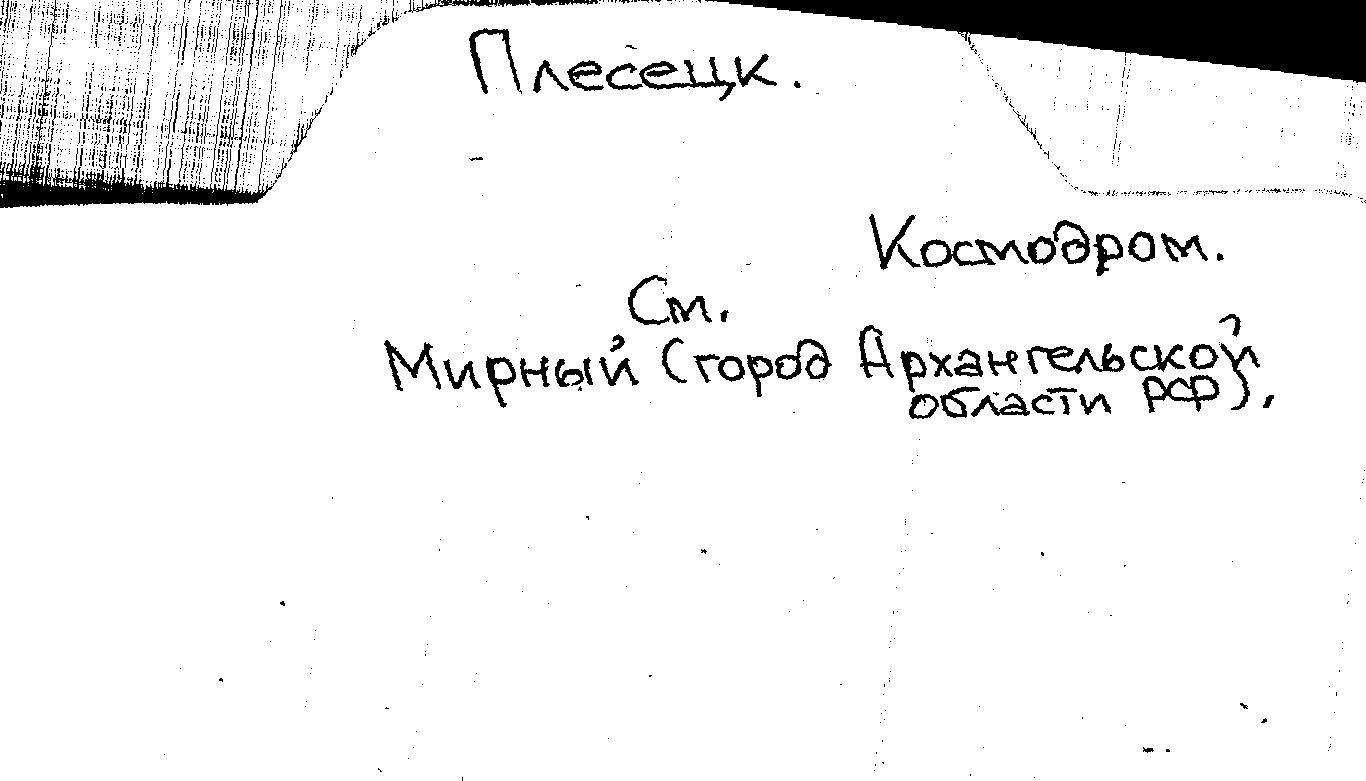 Плесецк.
Космодром.
См.
Мирный (город Архангельской
области РСР),